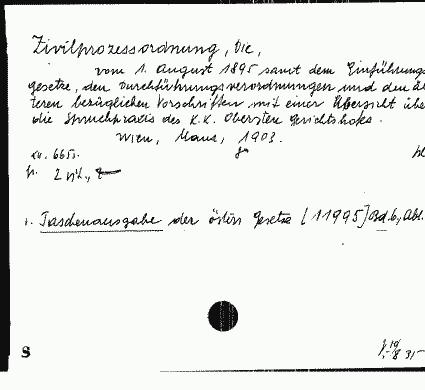 Zivilprozessordnung, Die,
vom 1. August 1895 samt dem Einführungs
gesetze, den Durchführungsverordnungen und den äl
teren bezüglichen Vorschriften mit einer Übersicht übe
die Spruchpraxis des K.K. Obersten Gerichtshofes.
Wien, Manz, 1903.
XV. 665 S.
8°
2
1. Taschenausgabe der österr Gesetze [11995] Bd. 6, Abt.
S